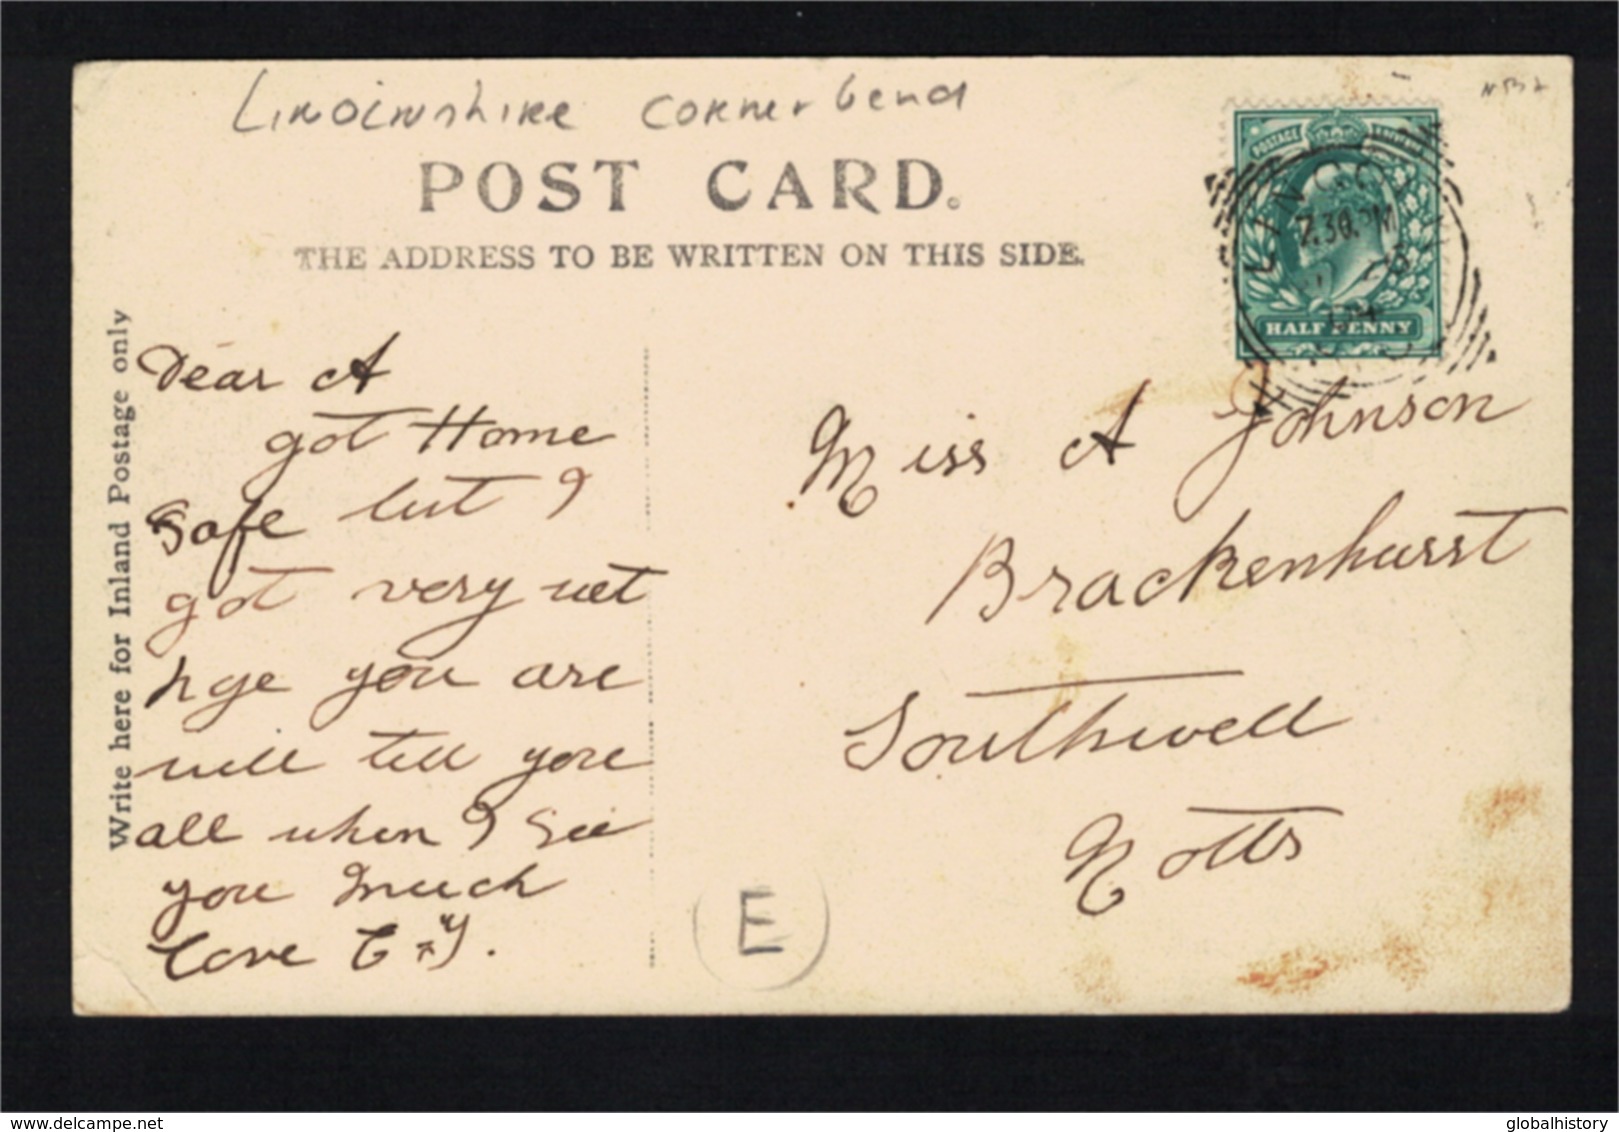 Lincolnshire corner bend
POST CARD.
THE ADDRESS TO BE WRITTEN ON THIS SIDE.
Write here for Inland Postage only
POSTAGE
LINCOLN
7.30.PM
HALF PENNY
Dear A
got Home
Safe but I
got very wet
hge you are
will tell you
all when I See
you Much
Love
Miss A Johnson
Brackenhurst
Southwell
Notts
E
www.delcampe.net
globalhistory